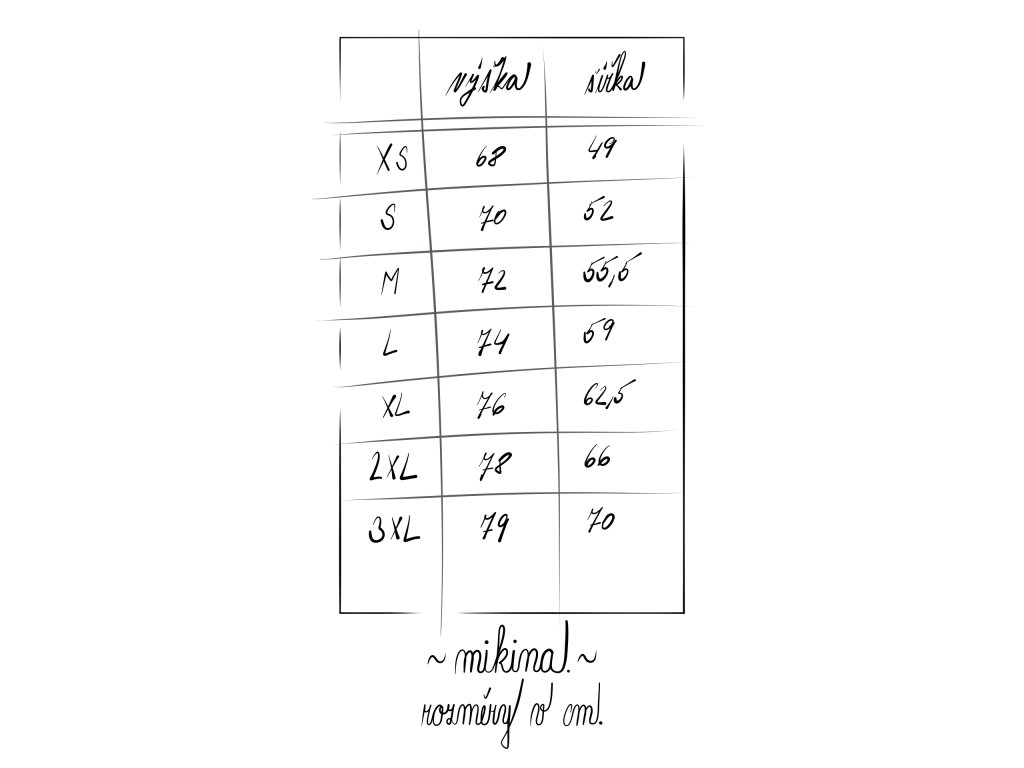 výška šířka
XS 68 49
S 70 52
M 72 55,5
L 74 59
XL 76 62,5
2XL 78 66
3XL 79 70
~ mikina. ~
rozměry v cm.